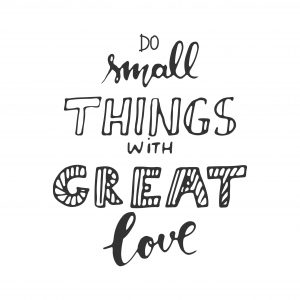 DO
small
THINGS
WITH
GREAT
love